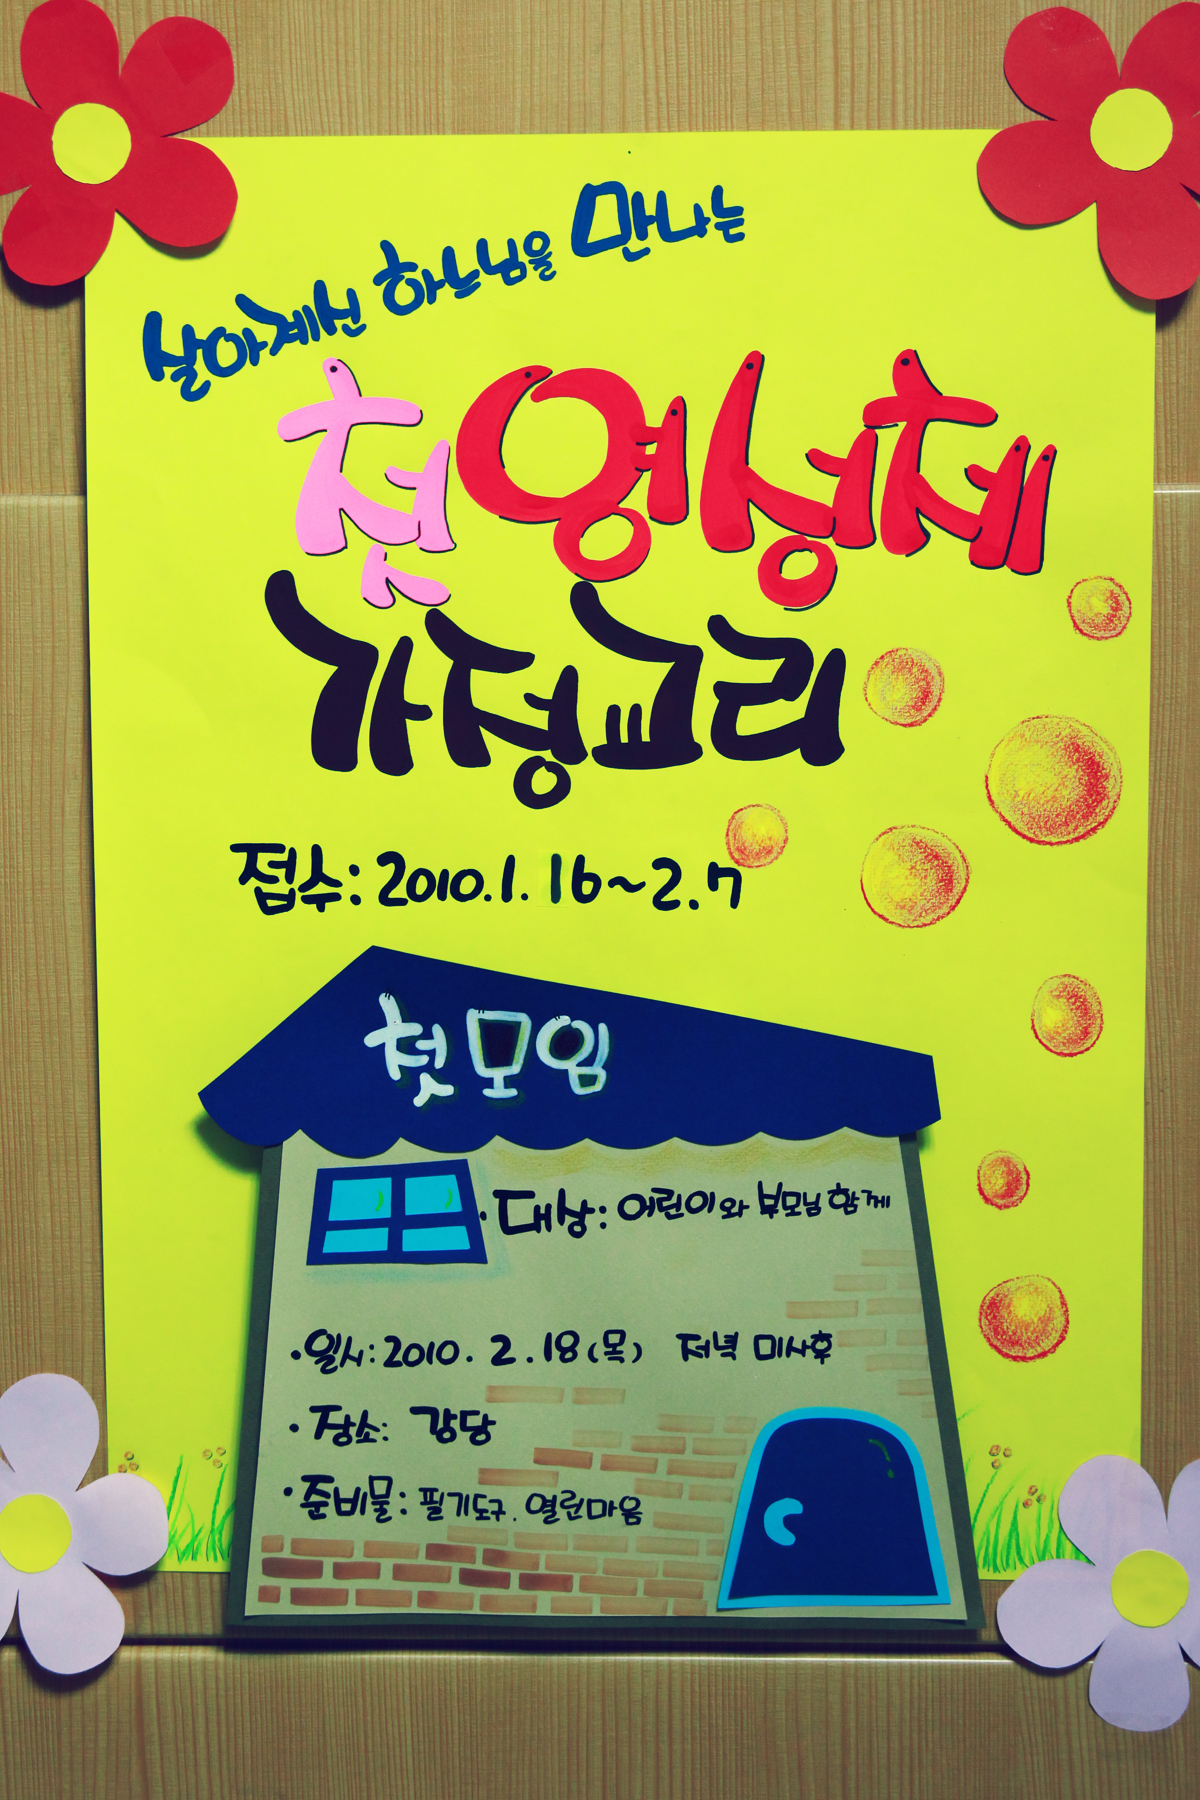 살아계신 하느님을 만나는
첫영성체
가정교리
접수: 2010.1.16~2.7
첫모임
·대상: 어린이와 부모님 함께
·일시: 2010. 2. 18(목) 저녁 미사후
·장소: 강당
·준비물: 필기도구. 열린마음